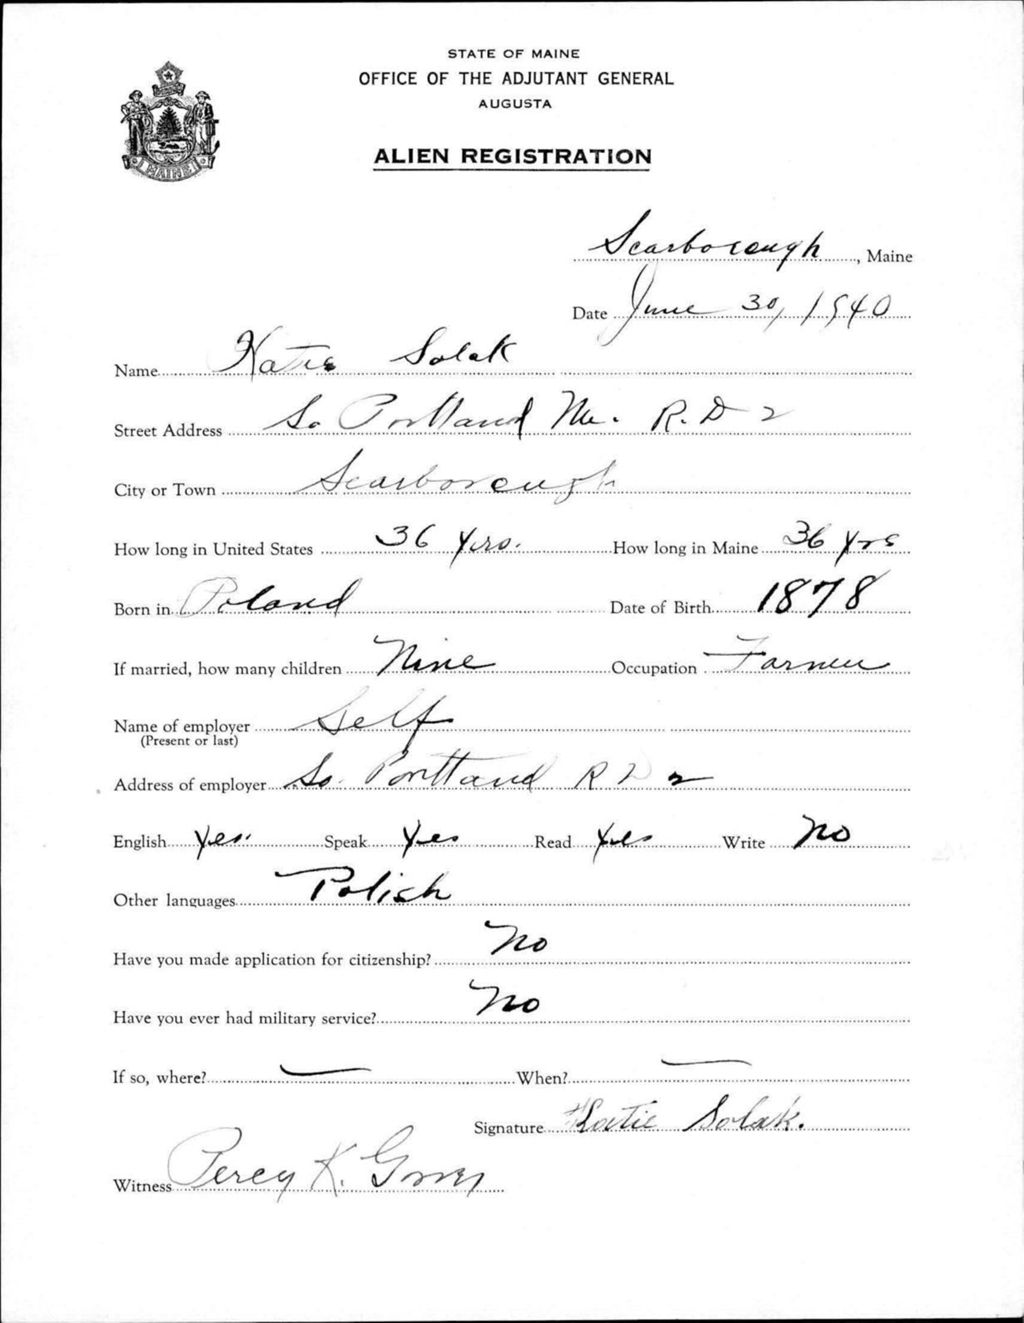 STATE OF MAINE
OFFICE OF THE ADJUTANT GENERAL
AUGUSTA
ALIEN REGISTRATION
MAINE
Scarborough, Maine
Date June 30, 1940
Name Katie Solak
Street Address So Portland Me. R.D 2
City or Town Scarborough
How long in United States 36 Yrs. How long in Maine 36 Yrs
Born in Poland Date of Birth 1878
If married, how many children Nine Occupation Farmer
Name of employer Self
(Present or last)
Address of employer So. Portland R D 2
English Yes. Speak Yes Read Yes Write No
Other languages Polish
Have you made application for citizenship? No
Have you ever had military service? No
If so, where? — When? —
Signature Katie Solak.
Witness Percy K.